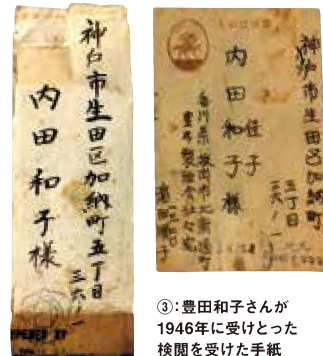 神戸市生田区加納町五丁目
三六ノ一
内田和子様
OPENED BY
神戸市生田区加納町
五丁目
三六ノ一
内田佳子
和子様
香川県坂出市
③：豊田和子さんが
1946年に受けとった
検閲を受けた手紙